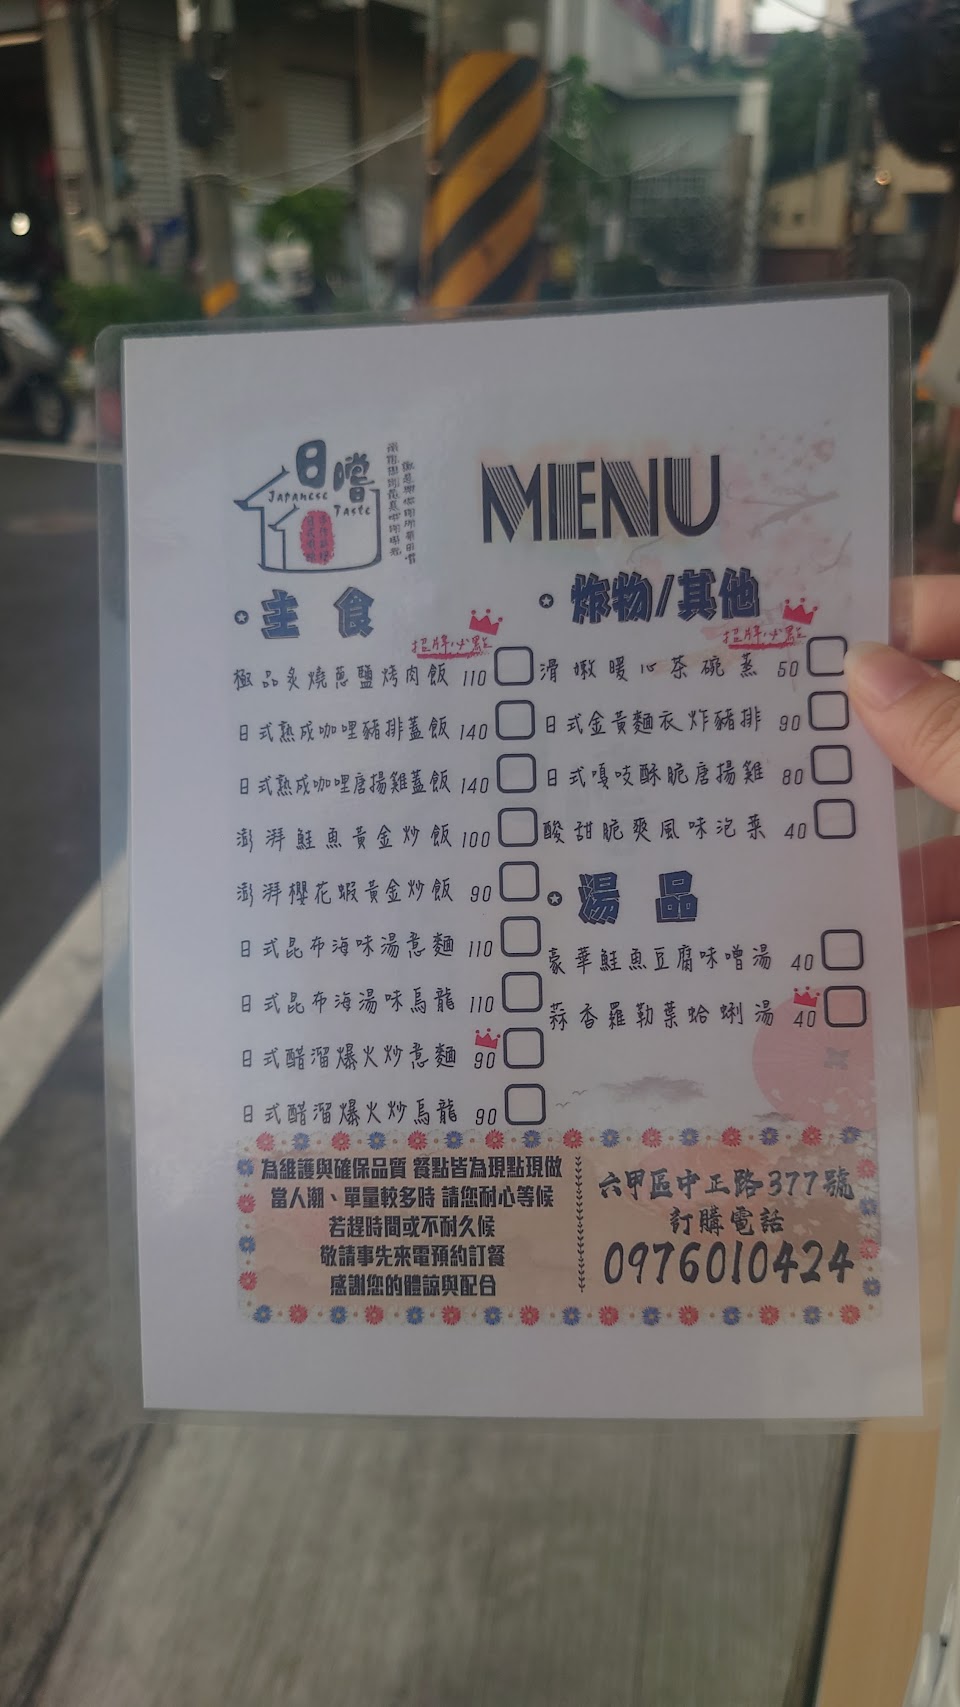 日嚐
Japanese
Taste
MENU
主食
招牌必點
極品炙燒蔥鹽烤肉飯 110
日式熟成咖哩豬排蓋飯 140
日式熟成咖哩唐揚雞蓋飯 140
澎湃鮭魚黃金炒飯 100
澎湃櫻花蝦黃金炒飯 90
日式昆布海味湯意麵 110
日式昆布海湯味烏龍 110
日式醋溜爆火炒意麵 90
日式醋溜爆火炒烏龍 90
炸物/其他
招牌必點
滑嫩暖心茶碗蒸 50
日式金黃麵衣炸豬排 90
日式嘎吱酥脆唐揚雞 80
酸甜脆爽風味泡菜 40
湯品
豪華鮭魚豆腐味噌湯 40
蒜香羅勒葉蛤蜊湯 40
為維護與確保品質 餐點皆為現點現做
當人潮、單量較多時 請您耐心等候
若趕時間或不耐久候
敬請事先來電預約訂餐
感謝您的體諒與配合
六甲區中正路377號
訂購電話
0976010424